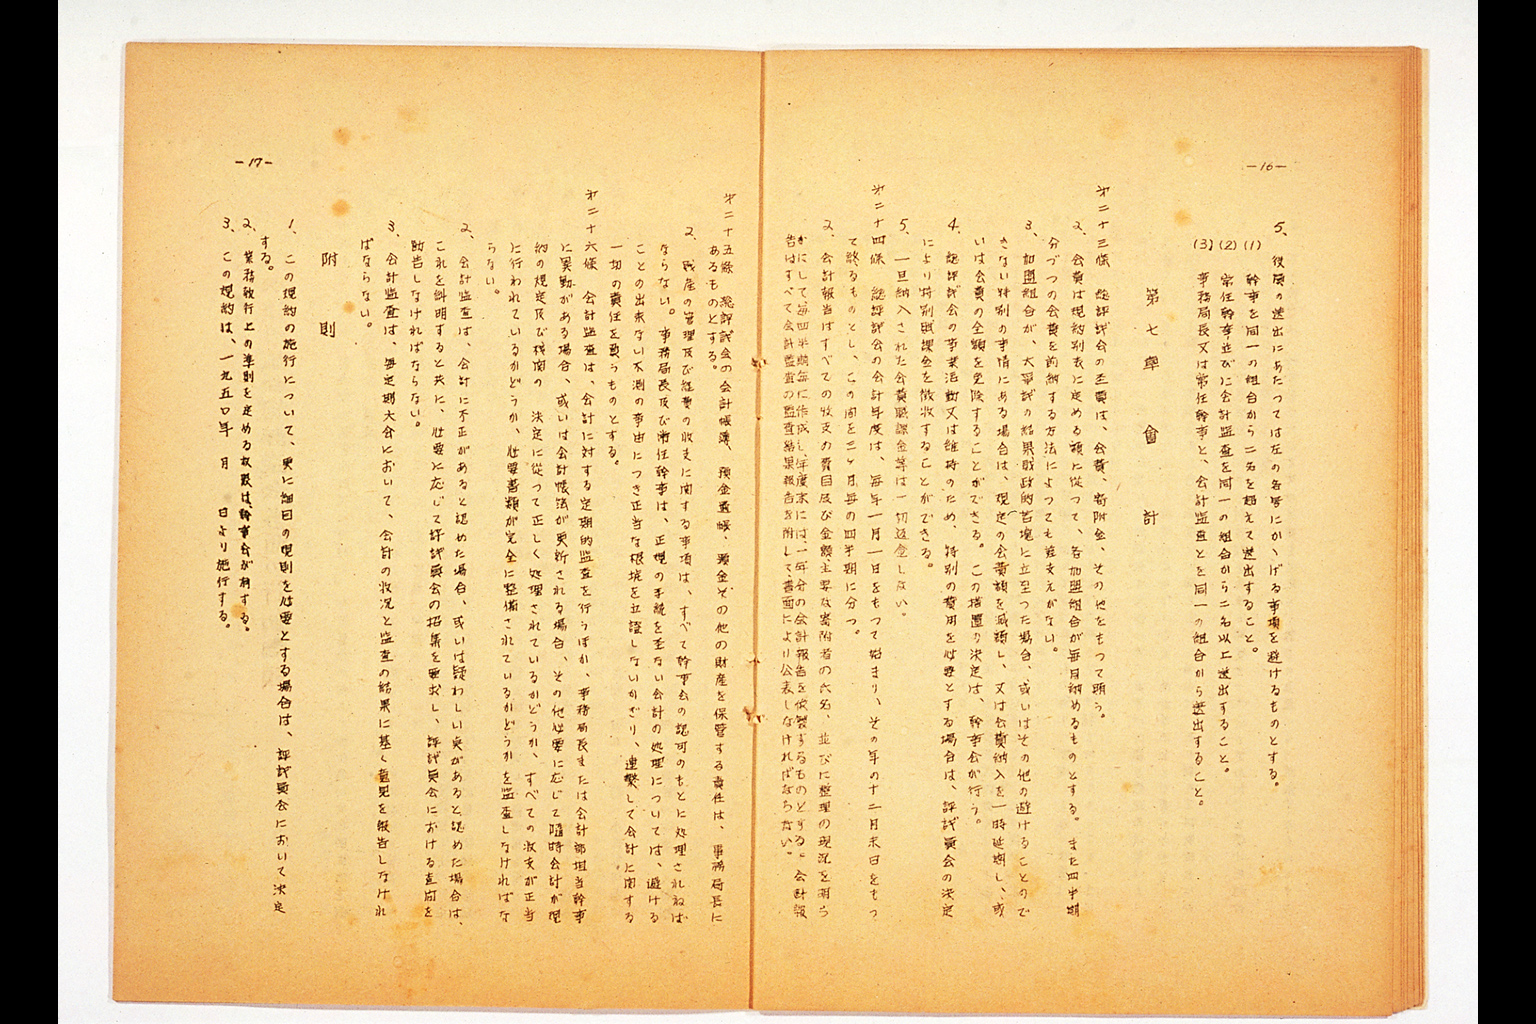 -16-
5、役員の選出にあたつては左の各号にかゝげる事項を避けるものとする。
(1) 幹事を同一の組合から二名を超えて選出すること。
(2) 常任幹事並びに会計監査を同一の組合から二名以上選出すること。
(3) 事務局長又は常任幹事と、会計監査とを同一の組合から選出すること。
第七章 會計
才二十三條 総評議会の経費は、会費、寄附金、その他をもつて賄う。
2、会費は規約別表に定める額に従つて、各加盟組合が毎月納めるものとする。また四半期
分づつの会費を前納する方法によつても差支えがない。
3、加盟組合が、大爭議の結果財政的苦境に立至つた場合、或いはその他の避けることので
きない特別の事情にある場合は、規定の会費額を減額し、又は会費納入を一時延期し、或
いは会費の全額を免除することができる。この措置の決定は、幹事会が行う。
4、総評議会の事業活動又は維持のため、特別の費用を必要とする場合は、評議員会の決定
により特別賦課金を徴收することができる。
5、一旦納入された会費賦課金等は一切返金しない。
才二十四條 総評議会の会計年度は、毎年一月一日をもつて始まり、その年の十二月末日をもつ
て終るものとし、この間を三ケ月毎の四半期に分つ。
2、会計報告はすべての收支の費目及び金額、主要な寄附者の氏名、並びに整理の現況を明ら
かにして毎四半期毎に作成し、年度末には、一年分の会計報告を作製するものとする。会計報
告はすべて会計監査の監査結果報告を附して、書面により公表しなければならない。
才二十五條 総評議会の会計帳簿、預金通帳、現金その他の財産を保管する責任は、事務局長に
あるものとする。
2、財産の管理及び経費の收支に関する事項は、すべて幹事会の認可のもとに処理されねば
ならない。事務局長及び常任幹事は、正規の手続を至ない会計の処理については、避ける
ことの出来ない不測の事由につき正当な根拠を立証しないかぎり、連帶して会計に関する
一切の責任を負うものとする。
才二十六條 会計監査は、会計に対する定期的監査を行うほか、事務局長または会計部担当幹事
に異動がある場合、或いは会計帳法が更新される場合、その他必要に応じて隨時会計が規
約の規定及び機関の決定に従つて正しく処理されているかどうか、すべての收支が正当
に行われているかどうか、必要書類が完全に整備されているかどうかを監査しなければな
らない。
2、会計監査は、会計に不正があると認めた場合、或いは疑わしい点があると認めた場合は、
これを糾明すると共に、必要に応じて評議員会の招集を要求し、評議員会における査問を
勧告しなければならない。
3、会計監査は、毎定期大会において、会計の收況と監査の結果に基く意見を報告しなけれ
ばならない。
附則
1、この規約の施行について、更に細目の規則を必要とする場合は、評議員会において決定
する。
2、業務執行上の準則を定める权限は、幹事会が有する。
3、この規約は、一九五〇年 月 日より施行する。
-17-